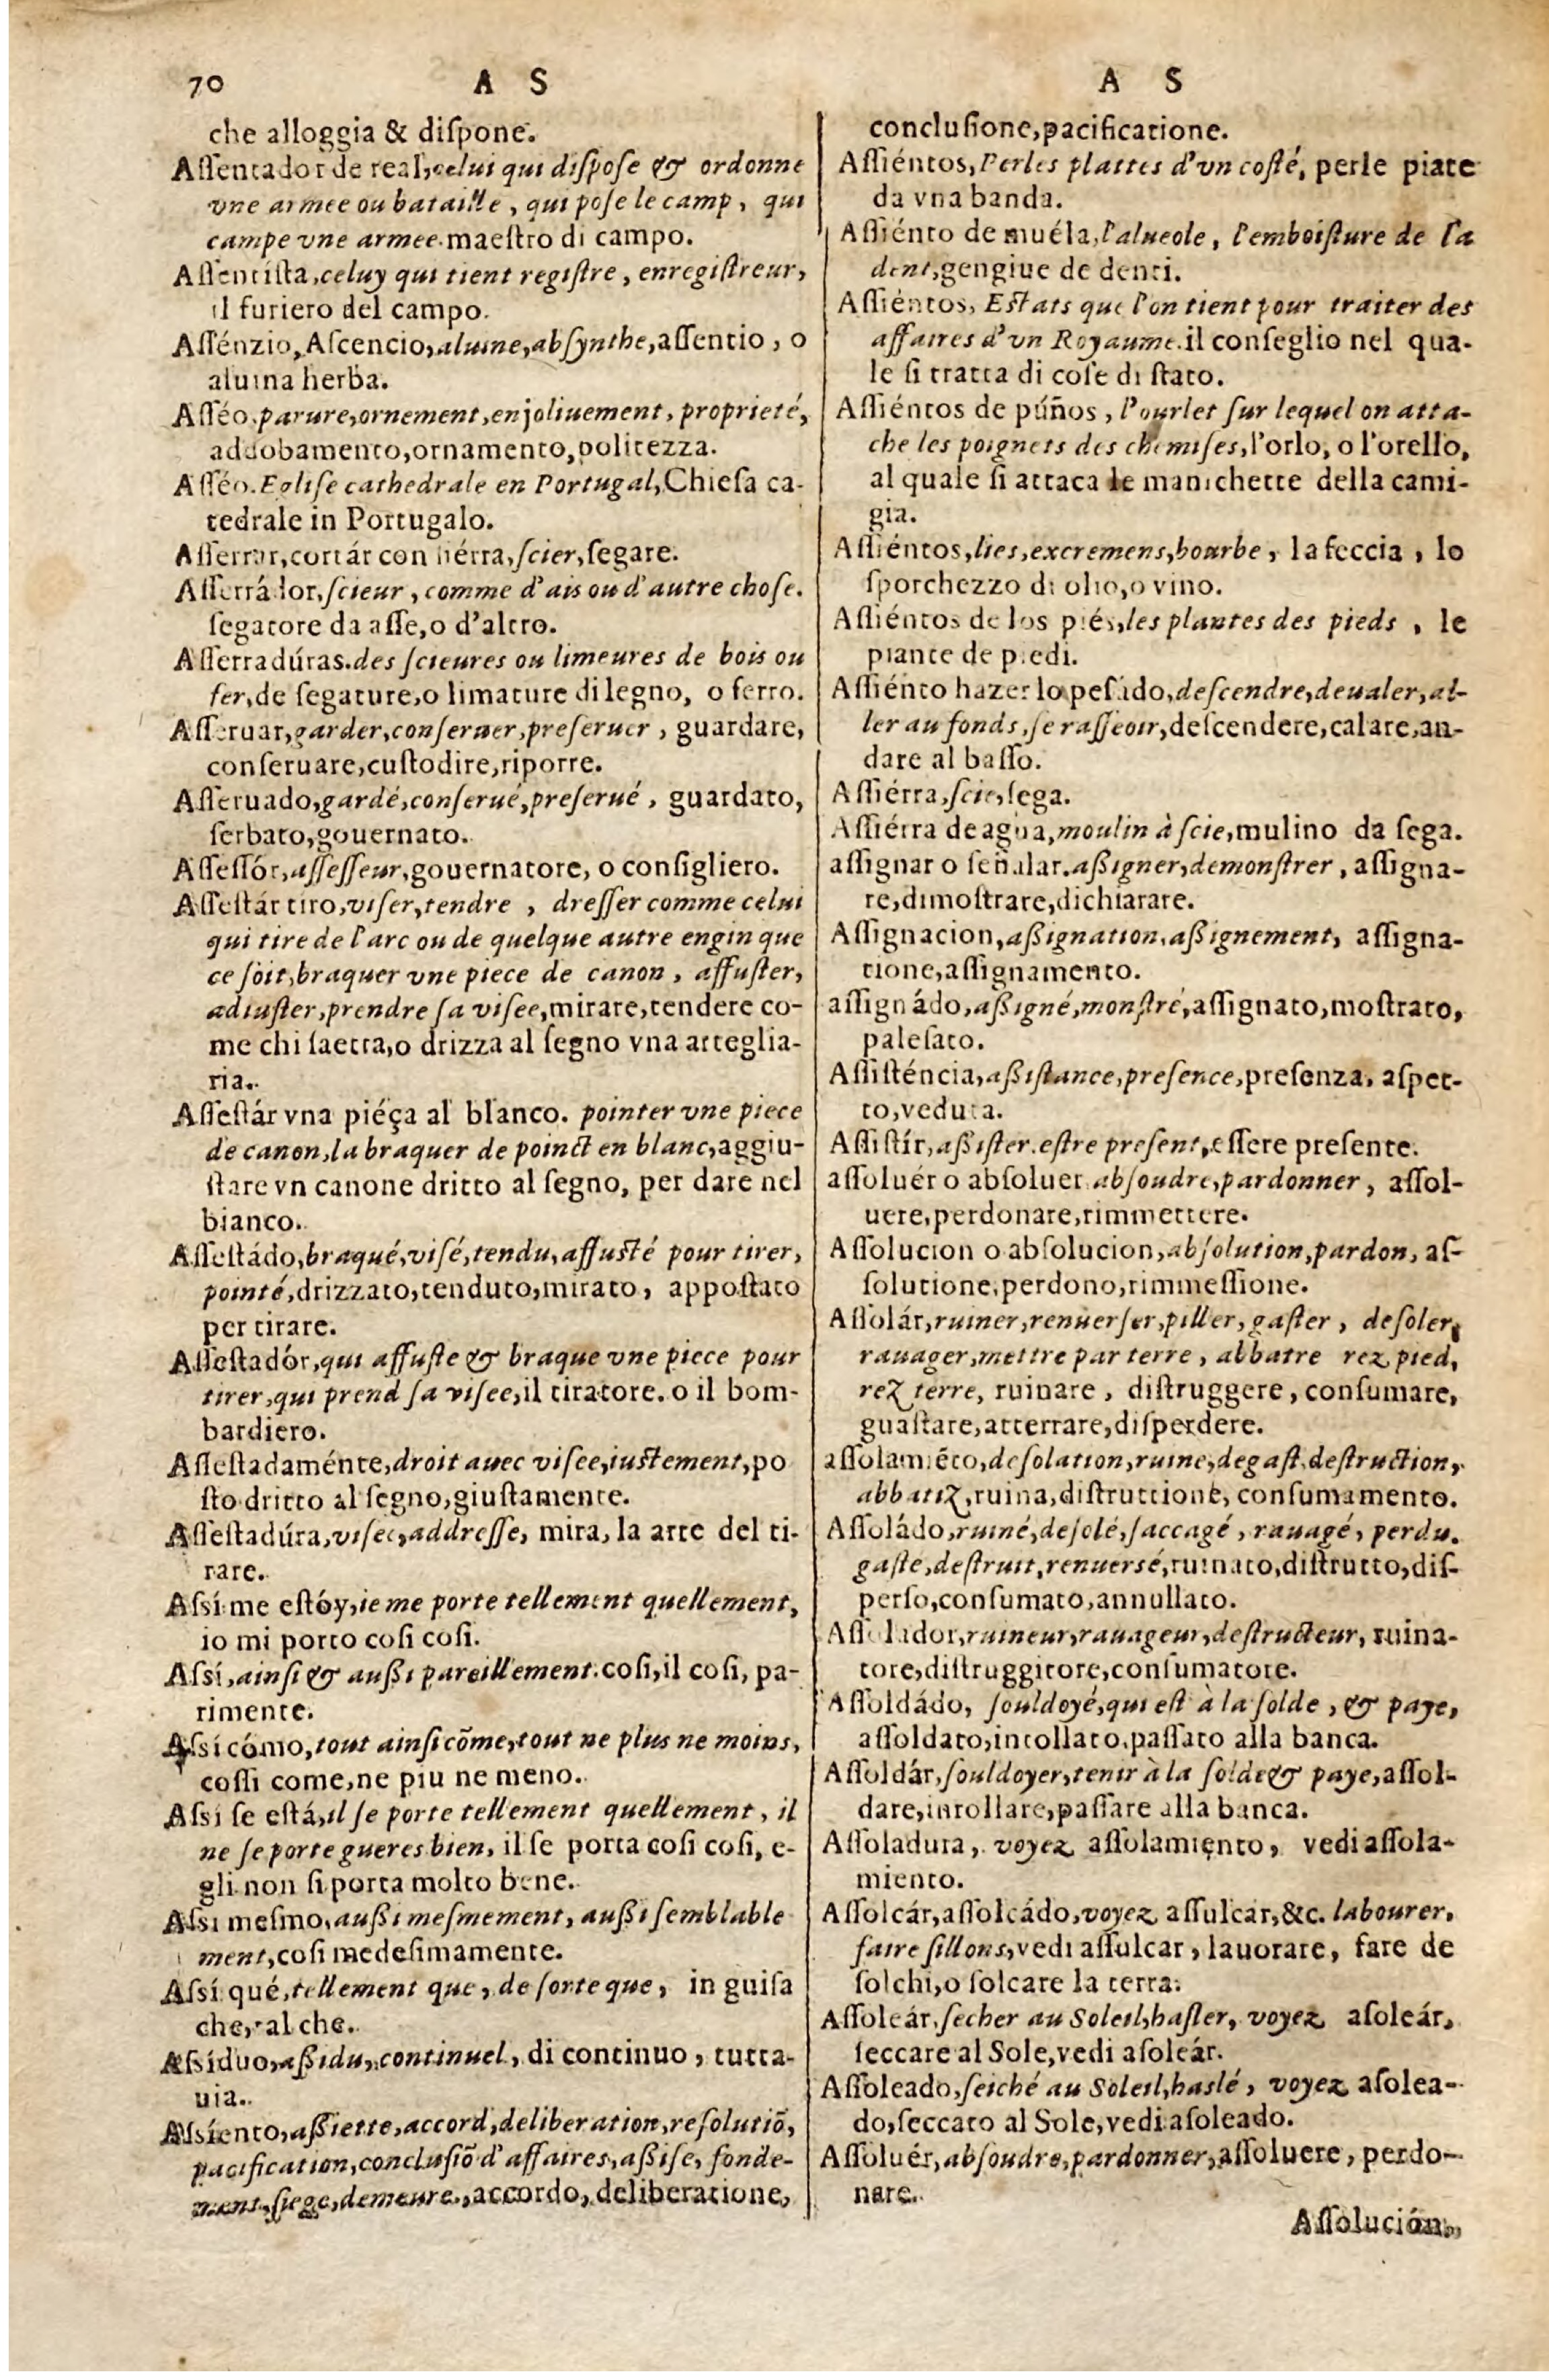 70 A S
che alloggia & diſpone.
Aſſentador de real, celui qui diſpoſe & ordonne
vne armee ou bataille, qui poſe le camp, qui
campe vne armee. maeſtro di campo.
Aſſentíſta, celuy qui tient regiſtre, enregiſtreur,
il furiero del campo.
Aſſénzio, Aſcencio, aluine, abſynthe, aſſentio, o
aluina herba.
Aſſéo, parure, ornement, enjoliuement, proprieté,
addobamento, ornamento, politezza.
Aſſéo. Egliſe cathedrale en Portugal, Chieſa ca-
tedrale in Portugalo.
Aſſerrar, cortár con ſiérra, ſcier, ſegare.
Aſſerrádor, ſcieur, comme d'ais ou d'autre choſe.
ſegatore da aſſe, o d'altro.
Aſſerradúras. des ſcieures ou limeures de bois ou
fer, de ſegature, o limature di legno, o ferro.
Aſſeruar, garder, conſeruer, preſeruer, guardare,
conſeruare, cuſtodire, riporre.
Aſſeruado, gardé, conſerué, preſerué, guardato,
ſerbato, gouernato.
Aſſeſſór, aſſeſſeur, gouernatore, o conſigliero.
Aſſeſtár tiro, viſer, tendre, dreſſer comme celui
qui tire de l'arc ou de quelque autre engin que
ce ſoit, braquer vne piece de canon, affuſter,
adiuſter, prendre ſa viſee, mirare, tendere co-
me chi ſaetta, o drizza al ſegno vna arteglia-
ria.
Aſſeſtár vna piéça al blanco. pointer vne piece
de canon, la braquer de poinct en blanc, aggiu-
ſtare vn canone dritto al ſegno, per dare nel
bianco.
Aſſeſtádo, braqué, viſé, tendu, affuſté pour tirer,
pointé, drizzato, tenduto, mirato, appoſtato
per tirare.
Aſſeſtadór, qui affuſte & braque vne piece pour
tirer, qui prend ſa viſee, il tiratore. o il bom-
bardiero.
Aſſeſtadaménte, droit auec viſee, iuſtement, po
ſto dritto al ſegno, giuſtamente.
Aſſeſtadúra, viſee, addreſſe, mira, la arte del ti-
rare.
Aſsí me eſtóy, ie me porte tellement quellement,
io mi porto coſi coſi.
Aſsí, ainſi & auſsi pareillement. coſi, il coſi, pa-
rimente.
Aſsí cómo, tout ainſi cõme, tout ne plus ne moins,
coſſi come, ne piu ne meno.
Aſsi ſe eſtá, il ſe porte tellement quellement, il
ne ſe porte gueres bien, il ſe porta coſi coſi, e-
gli non ſi porta molto bene.
Aſsi meſmo, auſsi meſmement, auſsi ſemblable
ment, coſi medeſimamente.
Aſsí qué, tellement que, de ſorte que, in guiſa
che, tal che.
Aſsíduo, aſsidu, continuel, di continuo, tutta-
uia.
Aſsiénto, aſsiette, accord, deliberation, reſolutiõ,
pacification, concluſiõ d'affaires, aſsiſe, fonde-
ment, ſiege, demeure, accordo, deliberatione,
A S
concluſione, pacificatione.
Aſſiéntos, Perles plattes d'vn coſté, perle piate
da vna banda.
Aſſiénto de muéla, l'alueole, l'emboiſture de la
dent, gengiue de denti.
Aſſiéntos, Eſtats que l'on tient pour traiter des
affaires d'vn Royaume. il conſeglio nel qua-
le ſi tratta di coſe di ſtato.
Aſſiéntos de púños, l'ourlet ſur lequel on atta-
che les poignets des chemiſes, l'orlo, o l'orello,
al quale ſi attaca le manichette della cami-
gia.
Aſſiéntos, lies, excremens, bourbe, la feccia, lo
ſporchezzo di olio, o vino.
Aſſiéntos de los piés, les plantes des pieds, le
piante de piedi.
Aſſiénto hazer lo peſado, deſcendre, deualer, al-
ler au fonds, ſe raſſeoir, deſcendere, calare, an-
dare al baſſo.
Aſſiérra, ſcie, ſega.
Aſſiérra de agua, moulin à ſcie, mulino da ſega.
aſſignar o ſeñalar. aſsigner, demonſtrer, aſſigna-
re, dimoſtrare, dichiarare.
Aſſignacion, aſsignation, aſsignement, aſſigna-
tione, aſſignamento.
aſſignádo, aſsigné, monſtré, aſſignato, moſtrato,
paleſato.
Aſſiſténcia, aſsiſtance, preſence, preſenza, aſpet-
to, veduta.
Aſſiſtír, aſsiſter. eſtre preſent, eſſere preſente.
aſſoluér o abſoluer abſoudre, pardonner, aſſol-
uere, perdonare, rimmettere.
Aſſolucion o abſolucion, abſolution, pardon, aſ-
ſolutione, perdono, rimmeſſione.
Aſſolár, ruiner, renuerſer, piller, gaſter, deſoler,
rauager, mettre par terre, abbatre rez pied,
rez terre, ruinare, diſtruggere, conſumare,
guaſtare, atterrare, diſperdere.
aſſolamiẽto, deſolation, ruine, degaſt, deſtruction,
abbatiz, ruina, diſtruttione, conſumamento.
Aſſoládo, ruiné, deſolé, ſaccagé, rauagé, perdu.
gaſte, deſtruit, renuersé, ruinato, diſtrutto, diſ-
perſo, conſumato, annullato.
Aſſolador, ruineur, rauageur, deſtructeur, ruina-
tore, diſtruggitore, conſumatore.
Aſſoldádo, ſouldoyé, qui eſt à la ſolde, & paye,
aſſoldato, intollato, paſſato alla banca.
Aſſoldár, ſouldoyer, tenir à la ſolde & paye, aſſol-
dare, inrollare, paſſare alla banca.
Aſſoladura, voyez aſſolamiento, vedi aſſola-
miento.
Aſſolcár, aſſolcádo, voyez aſſulcar, &c. labourer,
faire ſillons, vedi aſſulcar, lauorare, fare de
ſolchi, o ſolcare la terra.
Aſſoleár, ſecher au Soleil, haſler, voyez aſoleár,
ſeccare al Sole, vedi aſoleár.
Aſſoleado, ſeiché au Soleil, haslé, voyez aſolea-
do, ſeccato al Sole, vedi aſoleado.
Aſſoluér, abſoudre, pardonner, aſſoluere, perdo-
nare.
Aſſolución,